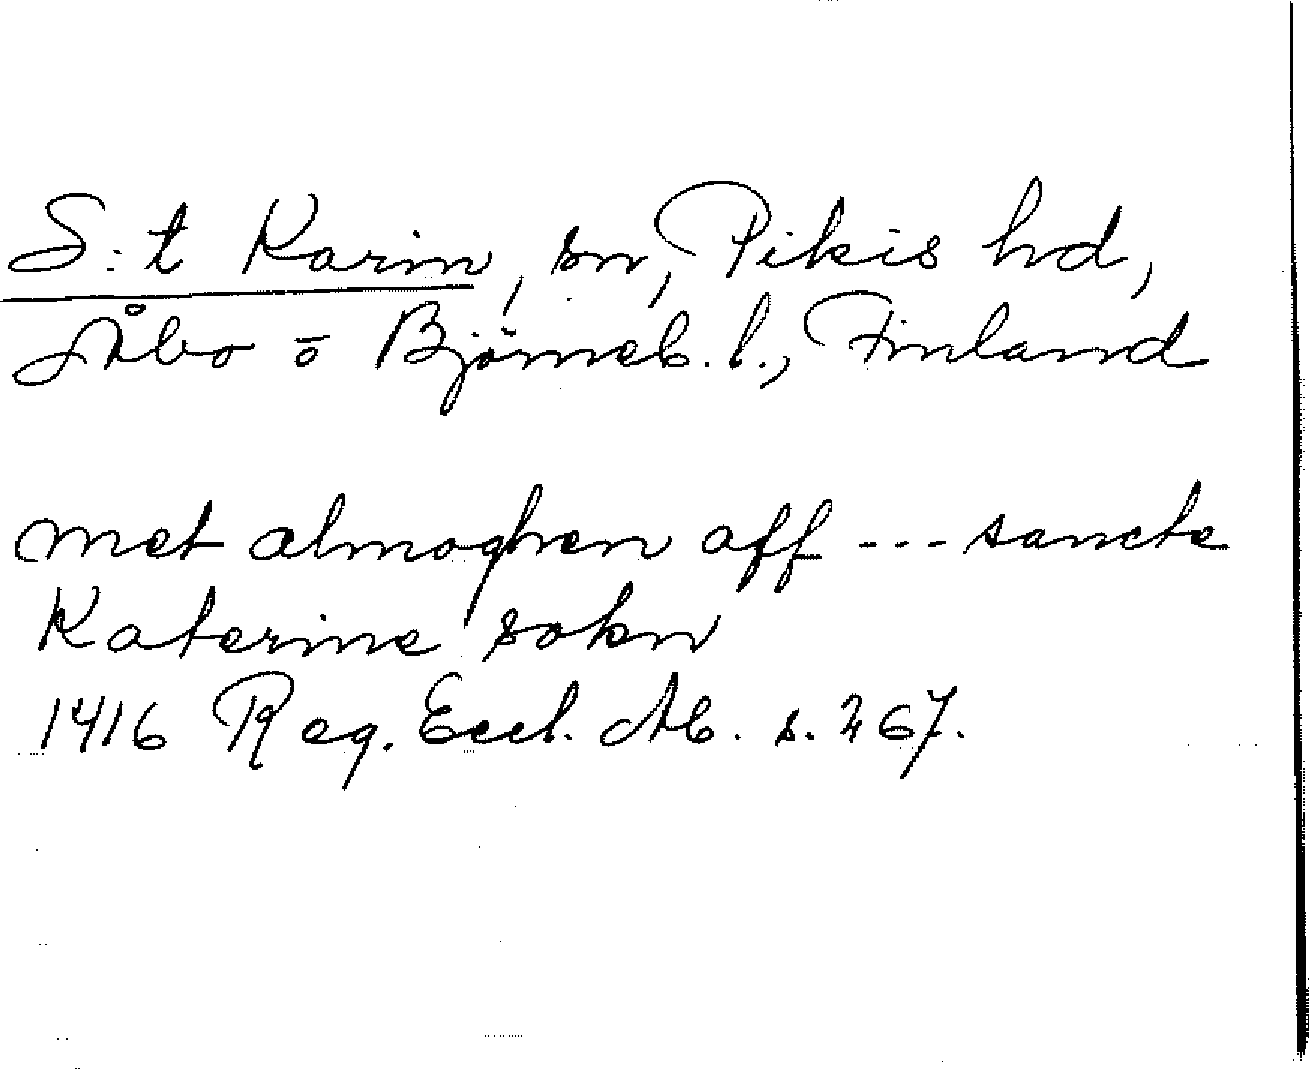 S:t Karin, sn, Pikis hd,
Åbo o Björneb. l., Finland
met almoghen aff --- sancte
Katerine sokn
1416 Reg. Eccl. Ab. s. 267.